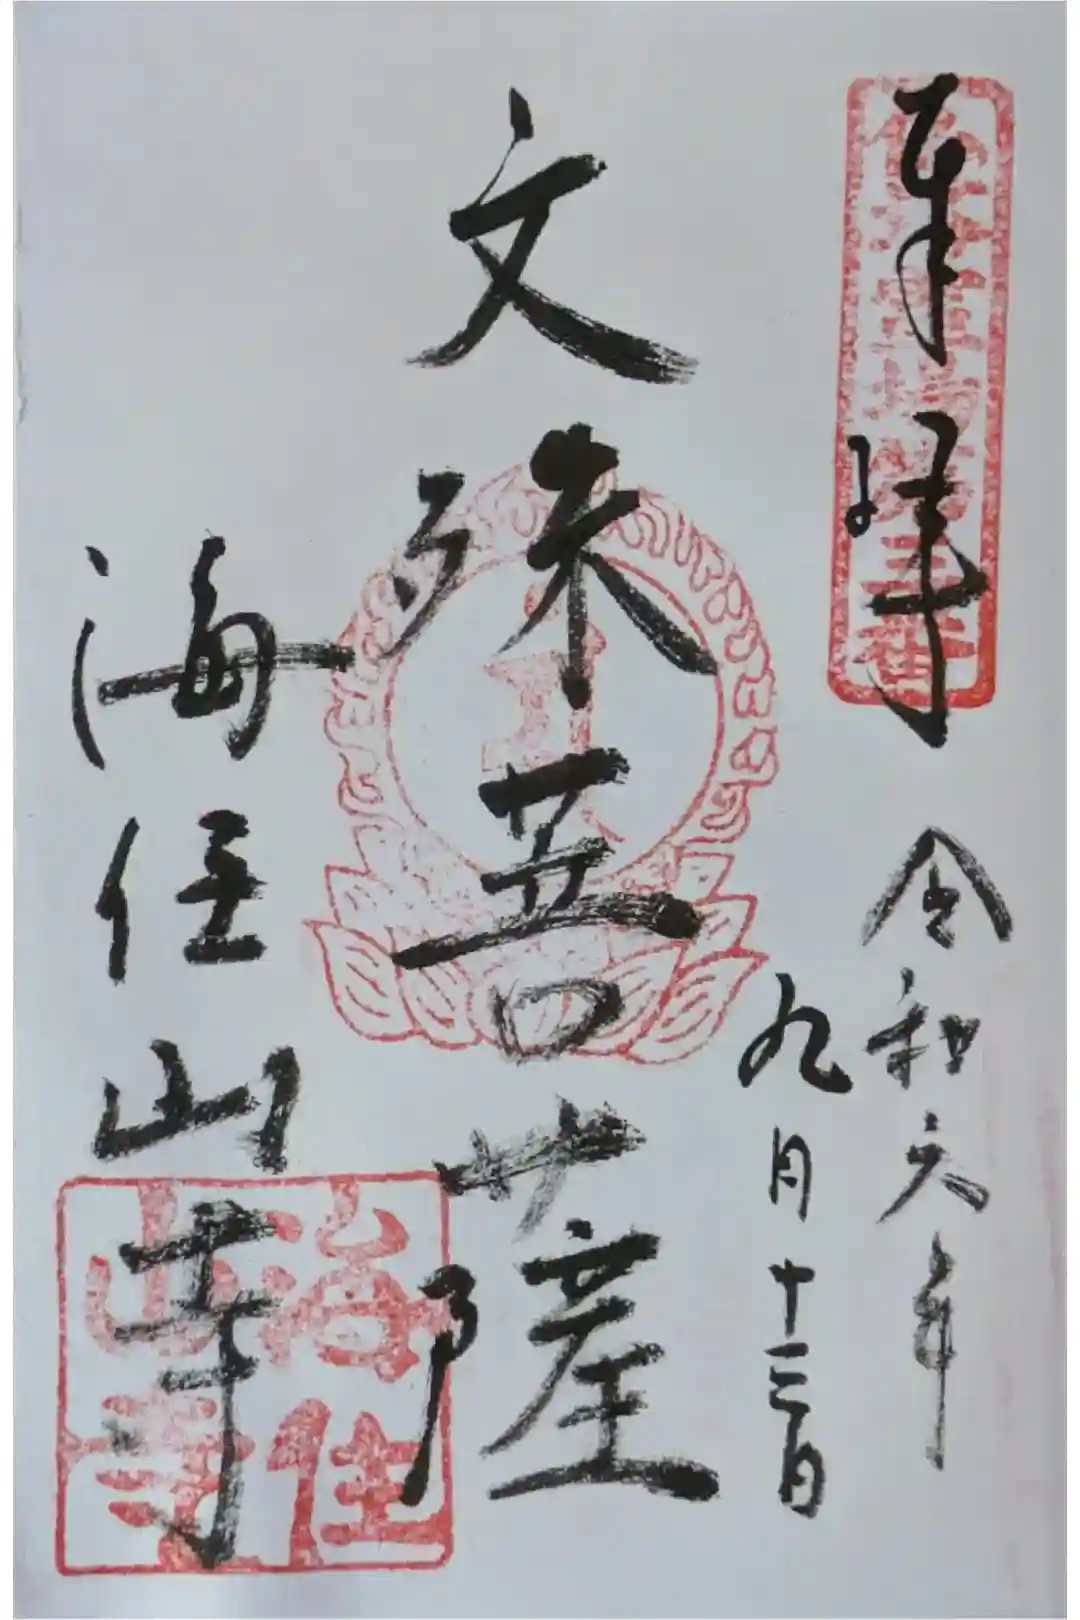 奉拝
令和六年
九月十三日
文殊菩薩
海住山寺
海住山寺